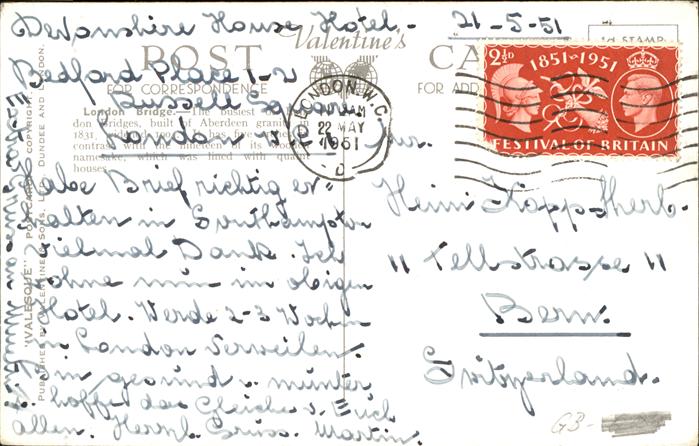 Devonshire House Hotel. - 21-5-51
POST CARD
Valentine's
Bedford Place 1-2
FOR CORRESPONDENCE
Russell Square
London W.C.
London Bridge.—The busiest of Lon-
don Bridges, built of Aberdeen granite
1831,
contrast with the nineteen of its
namesake, which was lined with quaint
houses.
habe Brief richtig er=
halten in Southampton
Vielmal Dank. Ich
wohne nun im obigen
Hotel. Werde 2-3 Wochen
in London Verweilen.
Bin gesund u. munter
hoffe das Gleiche v. Euch
allen. Herzl. Gruss. Martin.
"VALESQUE" POSTCARD
PUBLISHED BY VALENTINE & SONS, LTD., DUNDEE AND LONDON.
COPYRIGHT.
1d STAMP
FOR ADD
2½D
1851-1951
FESTIVAL OF BRITAIN
LONDON. W.C.
AM
22 MAY
1951
D
Heini Kopp-Herb.
11 Tellstrasse 11
Bern.
Switzerland.
GB-